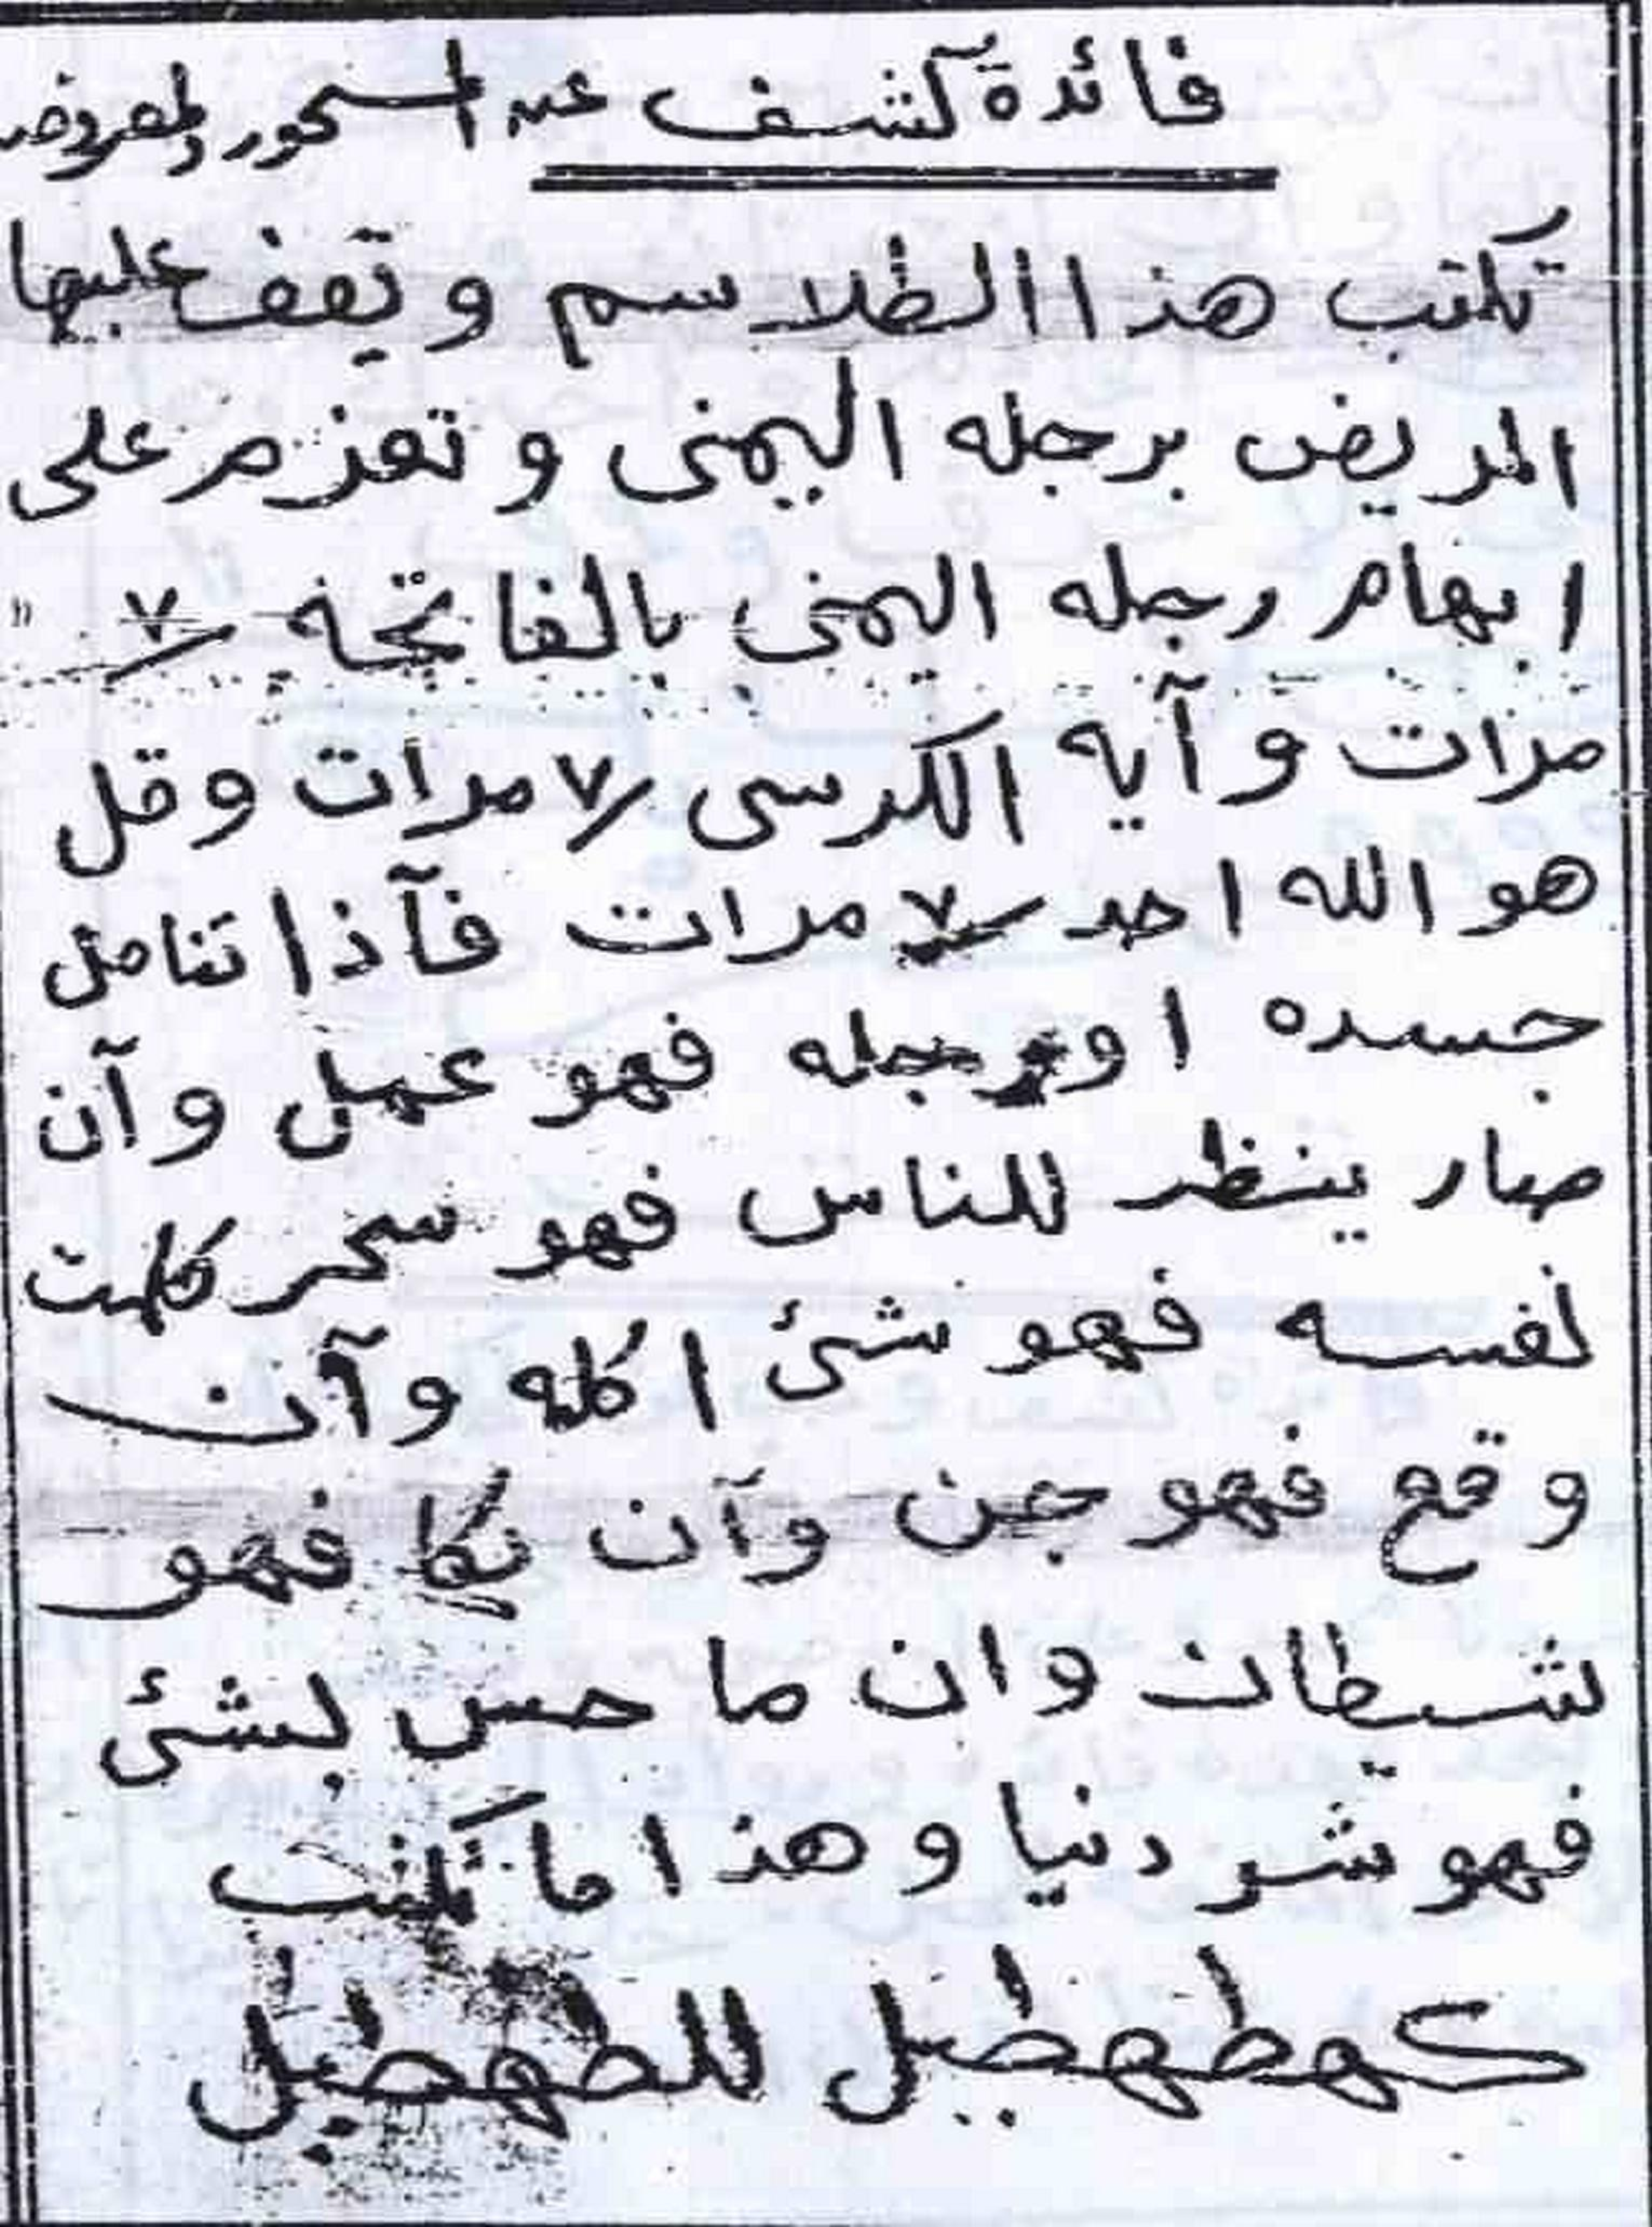 فائدة كشف عن المسحور والمعروض
تكتب هذا الطلاسم وتقف عليها
المريض برجله اليمنى وتعزم على
ابهام رجله اليمنى بالفاتحة ٧
مرات وآيه الكرسي ٧ مرات وقل
هو الله احد ٧ مرات فآذا تنامل
جسده او رجله فهو عمل وآن
صار ينظر للناس فهو سحر
لفسه فهو شئ اكله وآن
وقع فهو جن وآن نكا فهو
شيطان وان ما حس بشئ
فهو شر دنيا وهذا ما تكتب
كهطهطيل للطهطيل